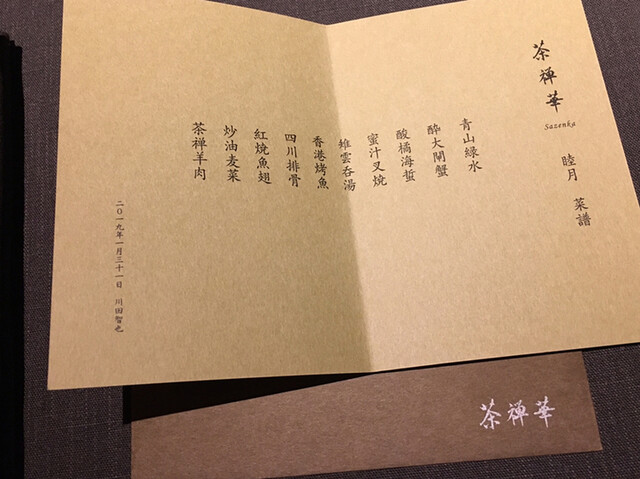 茶禅華
Sazenka
睦月 菜譜
青山緑水
酔大閘蟹
酸橘海蜇
蜜汁叉焼
雉雲呑湯
香港烤魚
四川排骨
紅焼魚翅
炒油麦菜
茶禅羊肉
二〇一九年一月三十一日 川田智也
茶禅華